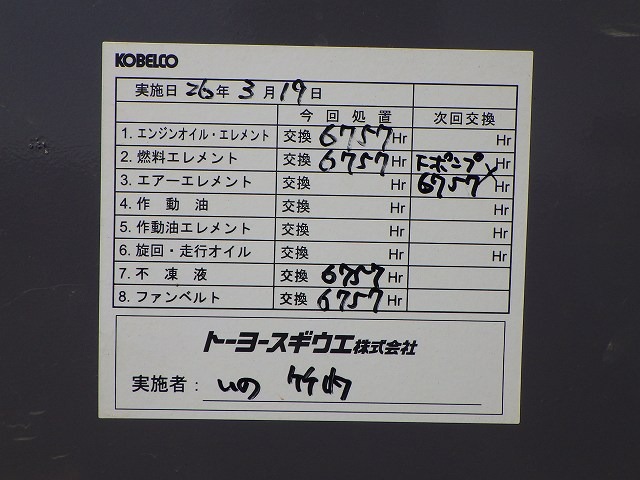 KOBELCO
実施日 26年 3月 19日
今回処置 次回交換
1. エンジンオイル・エレメント 交換 6757 Hr Hr
2. 燃料エレメント 交換 6757 Hr Hr
3. エアーエレメント 交換 Hr 6757 Hr
4. 作動油 交換 Hr Hr
5. 作動油エレメント 交換 Hr Hr
6. 旋回・走行オイル 交換 Hr Hr
7. 不凍液 交換 6757 Hr
8. ファンベルト 交換 6757 Hr
トーヨースギウエ株式会社
実施者: いの